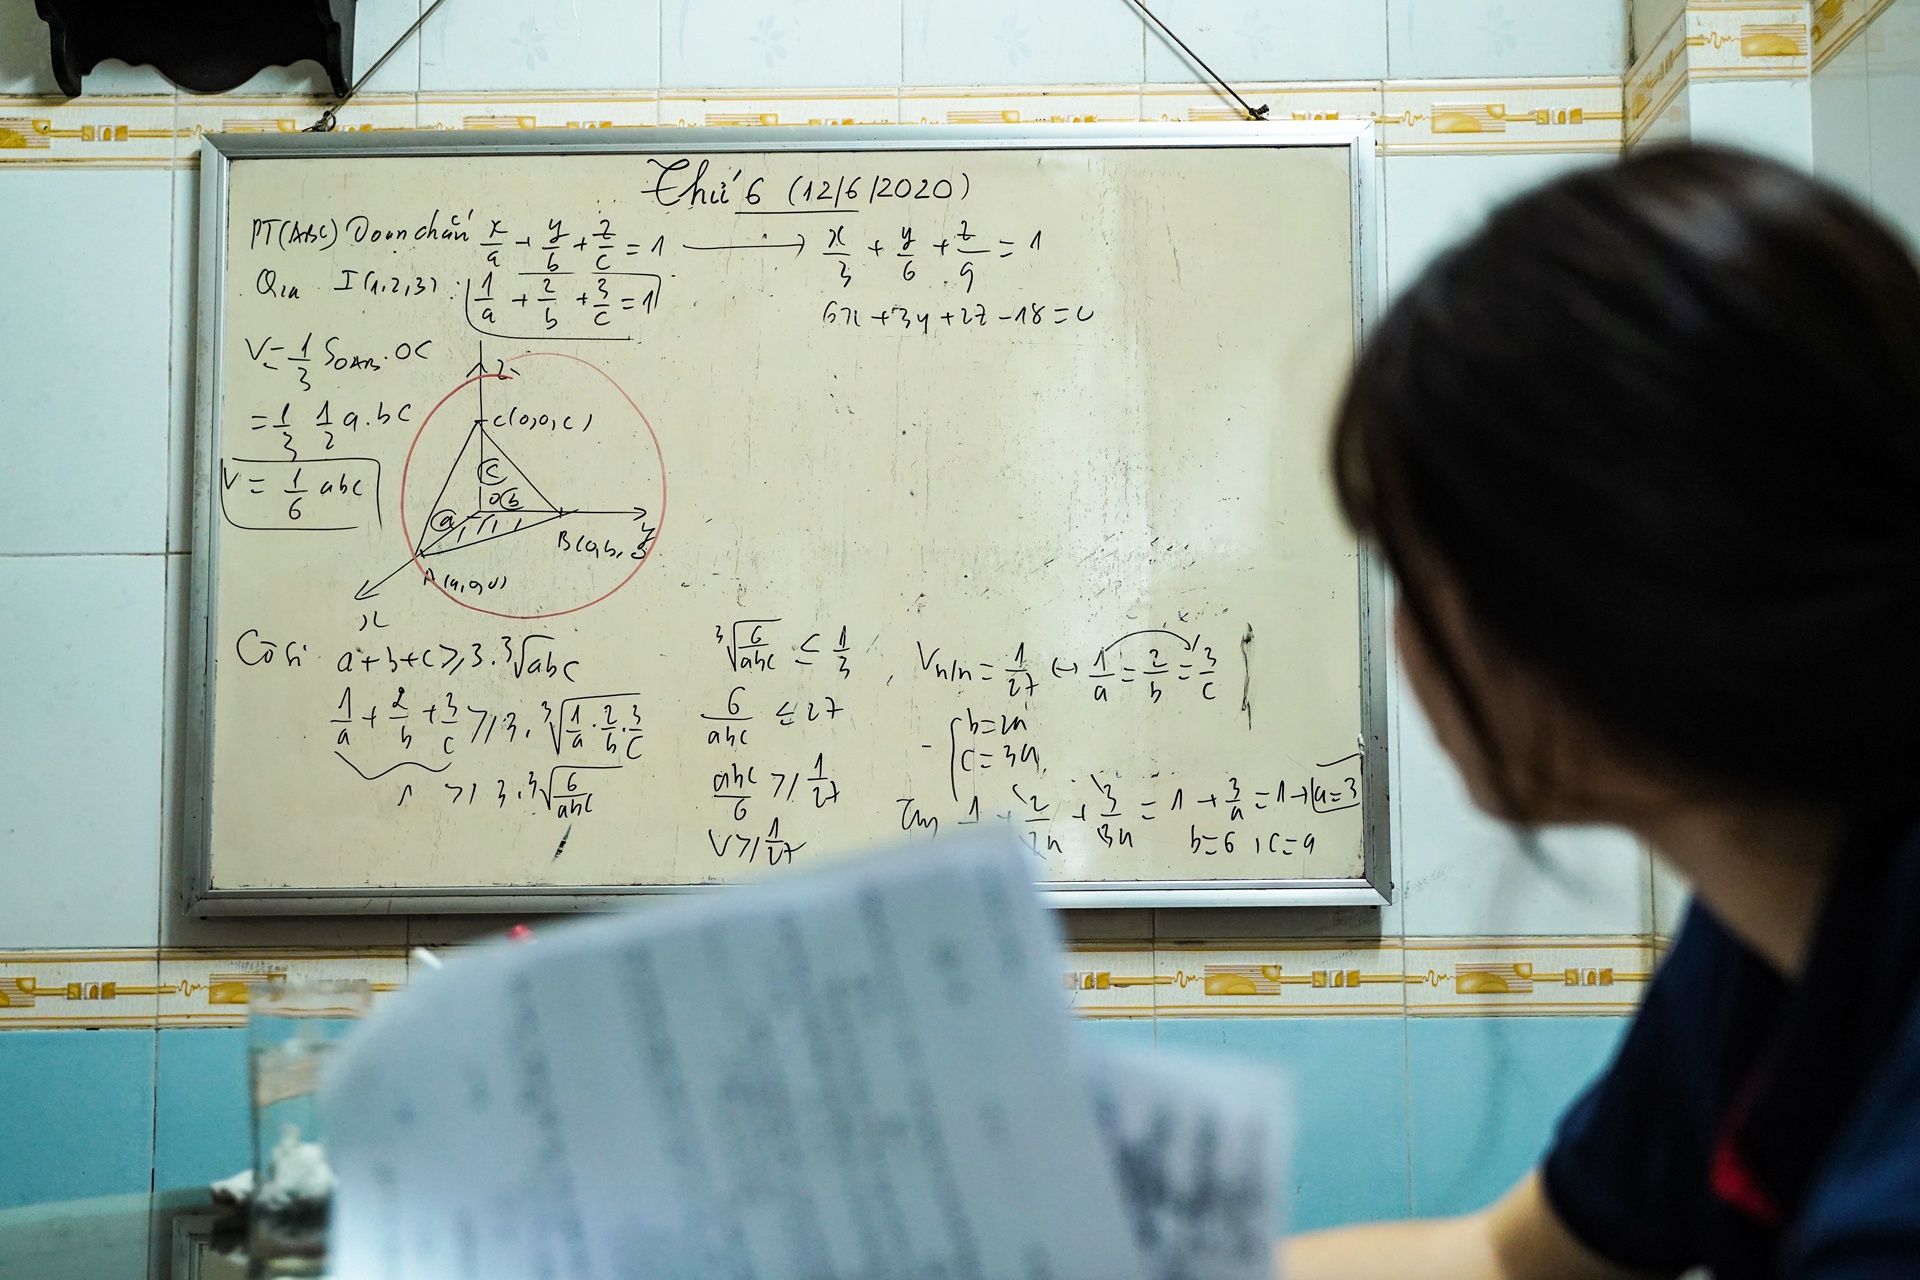 Thứ 6 (12/6/2020)
PT(ABC) Đoạn chắn x/a + y/b + z/c = 1 → x/3 + y/6 + z/9 = 1
Qua I(1,2,3) : 1/a + 2/b + 3/c = 1
6x + 3y + 2z - 18 = 0
V = 1/3 S_OAB . OC
= 1/3 1/2 a.bc
V = 1/6 abc
z
C(0,0,c)
c
O b
a
B(0,b,
y
A(a,0,0)
x
Cô si a+b+c ≥ 3.∛abc
1/a + 2/b + 3/c ≥ 3.∛(1/a . 2/b . 3/c)
1 ≥ 3.∛(6/abc)
∛(6/abc) ≤ 1/3
6/abc ≤ 27
abc/6 ≥ 1/27
V ≥ 1/27
V_n/n = 1/27 ↔ 1/a = 2/b = 3/c
b = 2a
c = 3a
1 + 2/2a + 3/3a = 1 → 3/a = 1 → a = 3
b = 6, c = 9